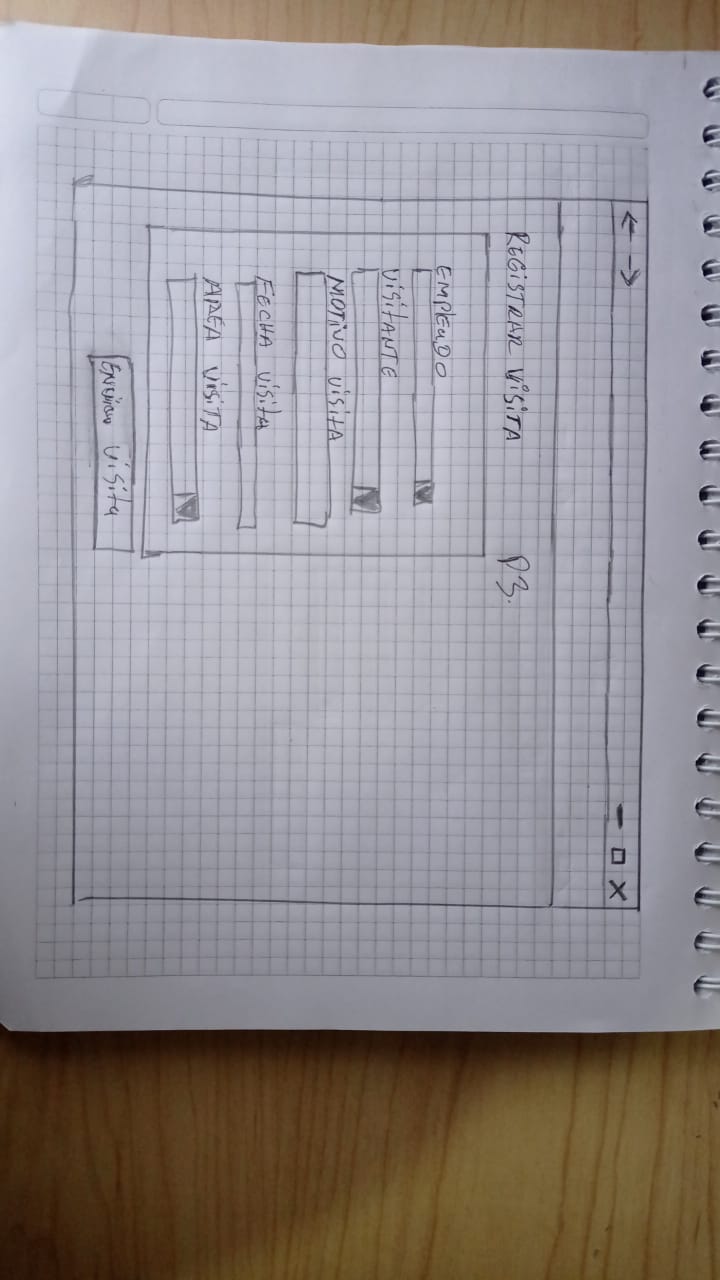 REGISTRAR VISITA
P3.
EMPLEADO
VISITANTE
MOTIVO VISITA
FECHA VISITA
AREA VISITA
Enviar Visita